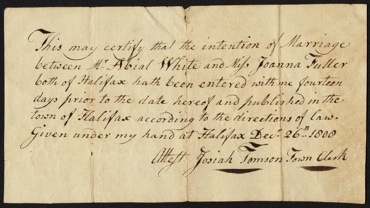 This may certify that the intention of Marriage
between Mr. Abial White and Miss Joanna Fuller
both of Halifax hath been entered with me fourteen
days prior to the date hereof and published in the
town of Halifax according to the directions of law.
Given under my hand at Halifax Decr. 26th 1808
Attest Josiah Tomson Town Clerk